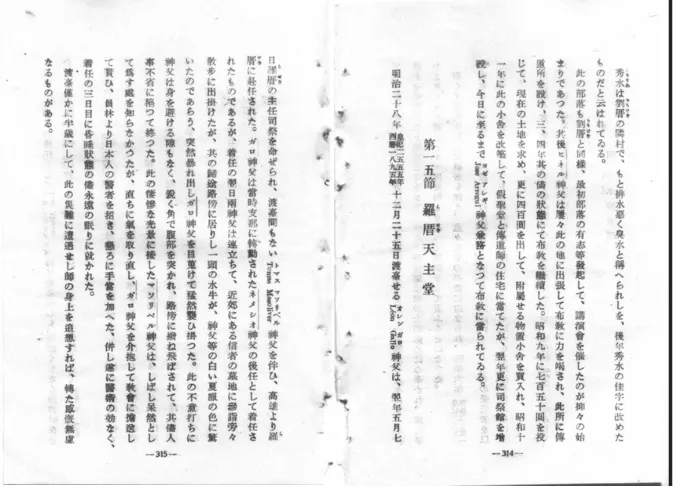 秀水は劉厝の隣村で、もと排水惡く臭水と稱へられしを、後年秀水の佳字に改めた
ものだと云はれてゐる。
此の部落も劉厝と同樣、最初部落の有志等發起して、講演會を催したのが抑々の始
まりであつた。其後ヒネル神父は屢々此の地に出張して布敎に力を竭され、此所に傳
道所を設け、三、四年其の儘の狀態にて布敎を繼續した。昭和九年に七百五十圓を投
じて、現在の土地を求め、更に四百圓を出して、附屬せる物置小舍を買入れ、昭和十
一年に此の小舍を改築して、假聖堂と傳道師の住宅に當てたが、翌年更に司祭館を增
設し、今日に至るまで ホセ アレギ Jose Arregui 神父兼務となつて布敎に當られてゐる。
第一五節 羅厝天主堂
明治二十八年 皇紀二五五五年 西曆一八九五年 十二月二十五日渡臺せる オレンガロ 神父は、翌年五月七
—314—
日羅厝の主任司祭を命ぜられ、渡臺間もない トマス マソリベル 神父を伴ひ、高雄より羅
厝に赴任された。ガロ神父は當時支那に轉勤されたネメシオ神父の後任として着任さ
れたものであるが、着任の翌日兩神父は連立ちて、近郊にある信者の墓地に參詣旁々
散步に出掛けたが、其の歸途路傍に居りし一頭の水牛が、神父等の白い夏服の色に驚
いたのであらう、突然暴れ出しガロ神父を目蒐けて猛然襲ひ掛つた。此の不意打ちに
神父は身を避ける隙もなく、銳く角で腹部を突かれ、路傍に撥ね飛ばされて、其儘人
事不省に陷つて終つた。此の悽慘な光景に接したマソリベル神父は、しばし呆然とし
て爲す處を知らなかつたが、直ちに氣を取り直し、ガロ神父を介抱して敎會に搬送し
て貰ひ、員林より日本人の醫者を招き、懇ろに手當を加へた、併し遂に醫術の効なく、
着任の三日目に昏睡狀態の儘永遠の眠りに就かれた。
渡臺僅かに半歲にして、此の災難に遭遇せし師の身上を追想すれば、轉た感慨無量
なるものがある。
—315—